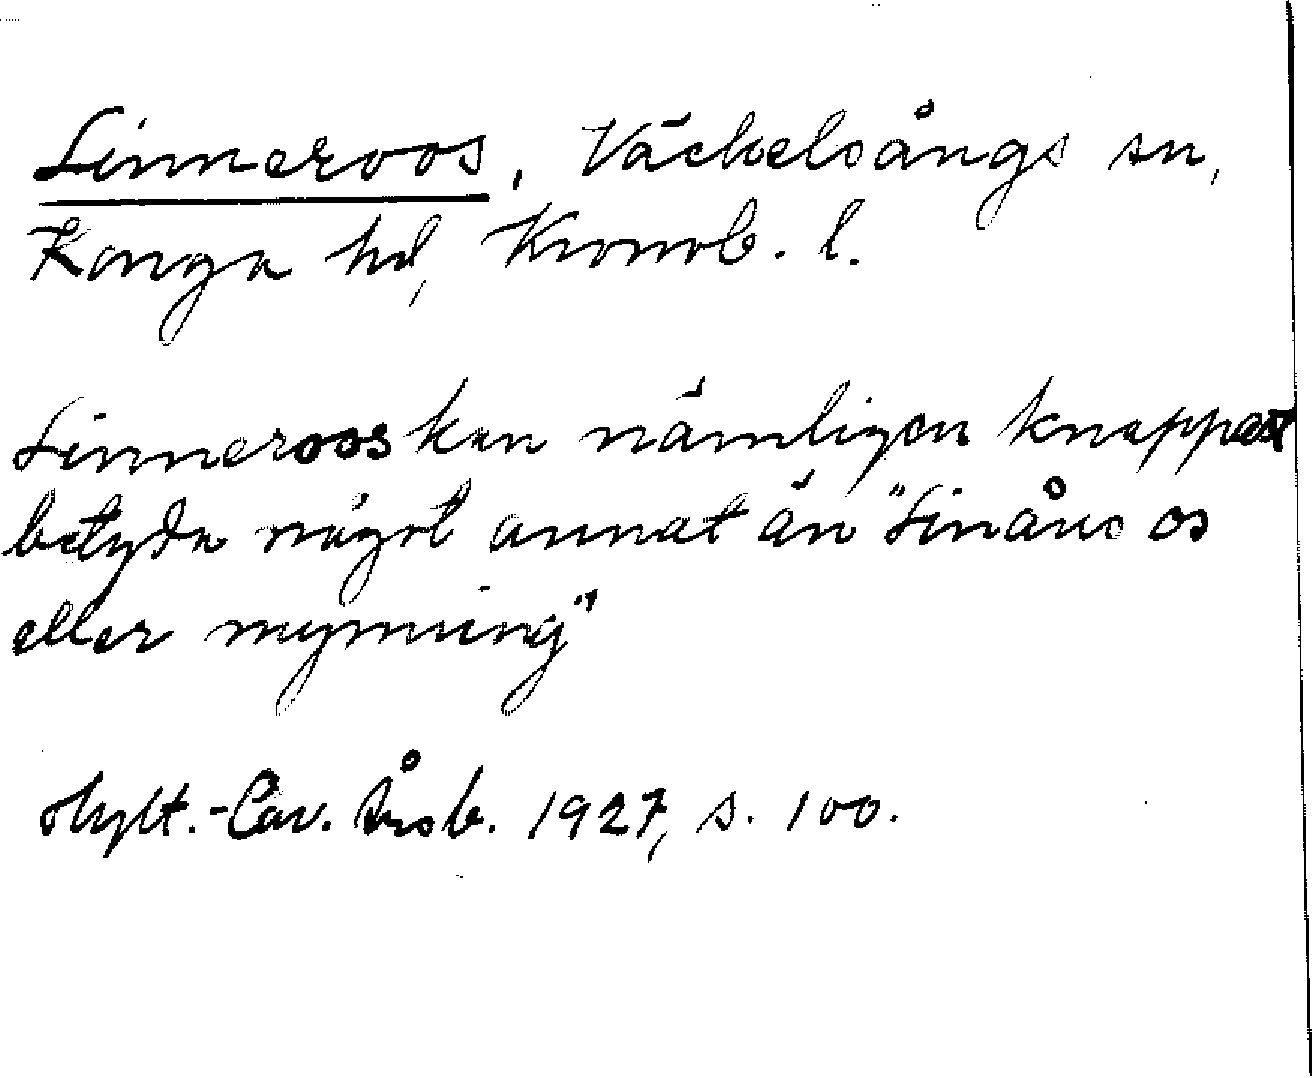 Linneroos, Väckelsångs sn,
Konga hd, Kronob. l.
Linneroos kan nämligen knappast
betyda något annat än "Linåns os
eller mynning"
Hylt.-Cav. Årsb. 1927, s. 100.